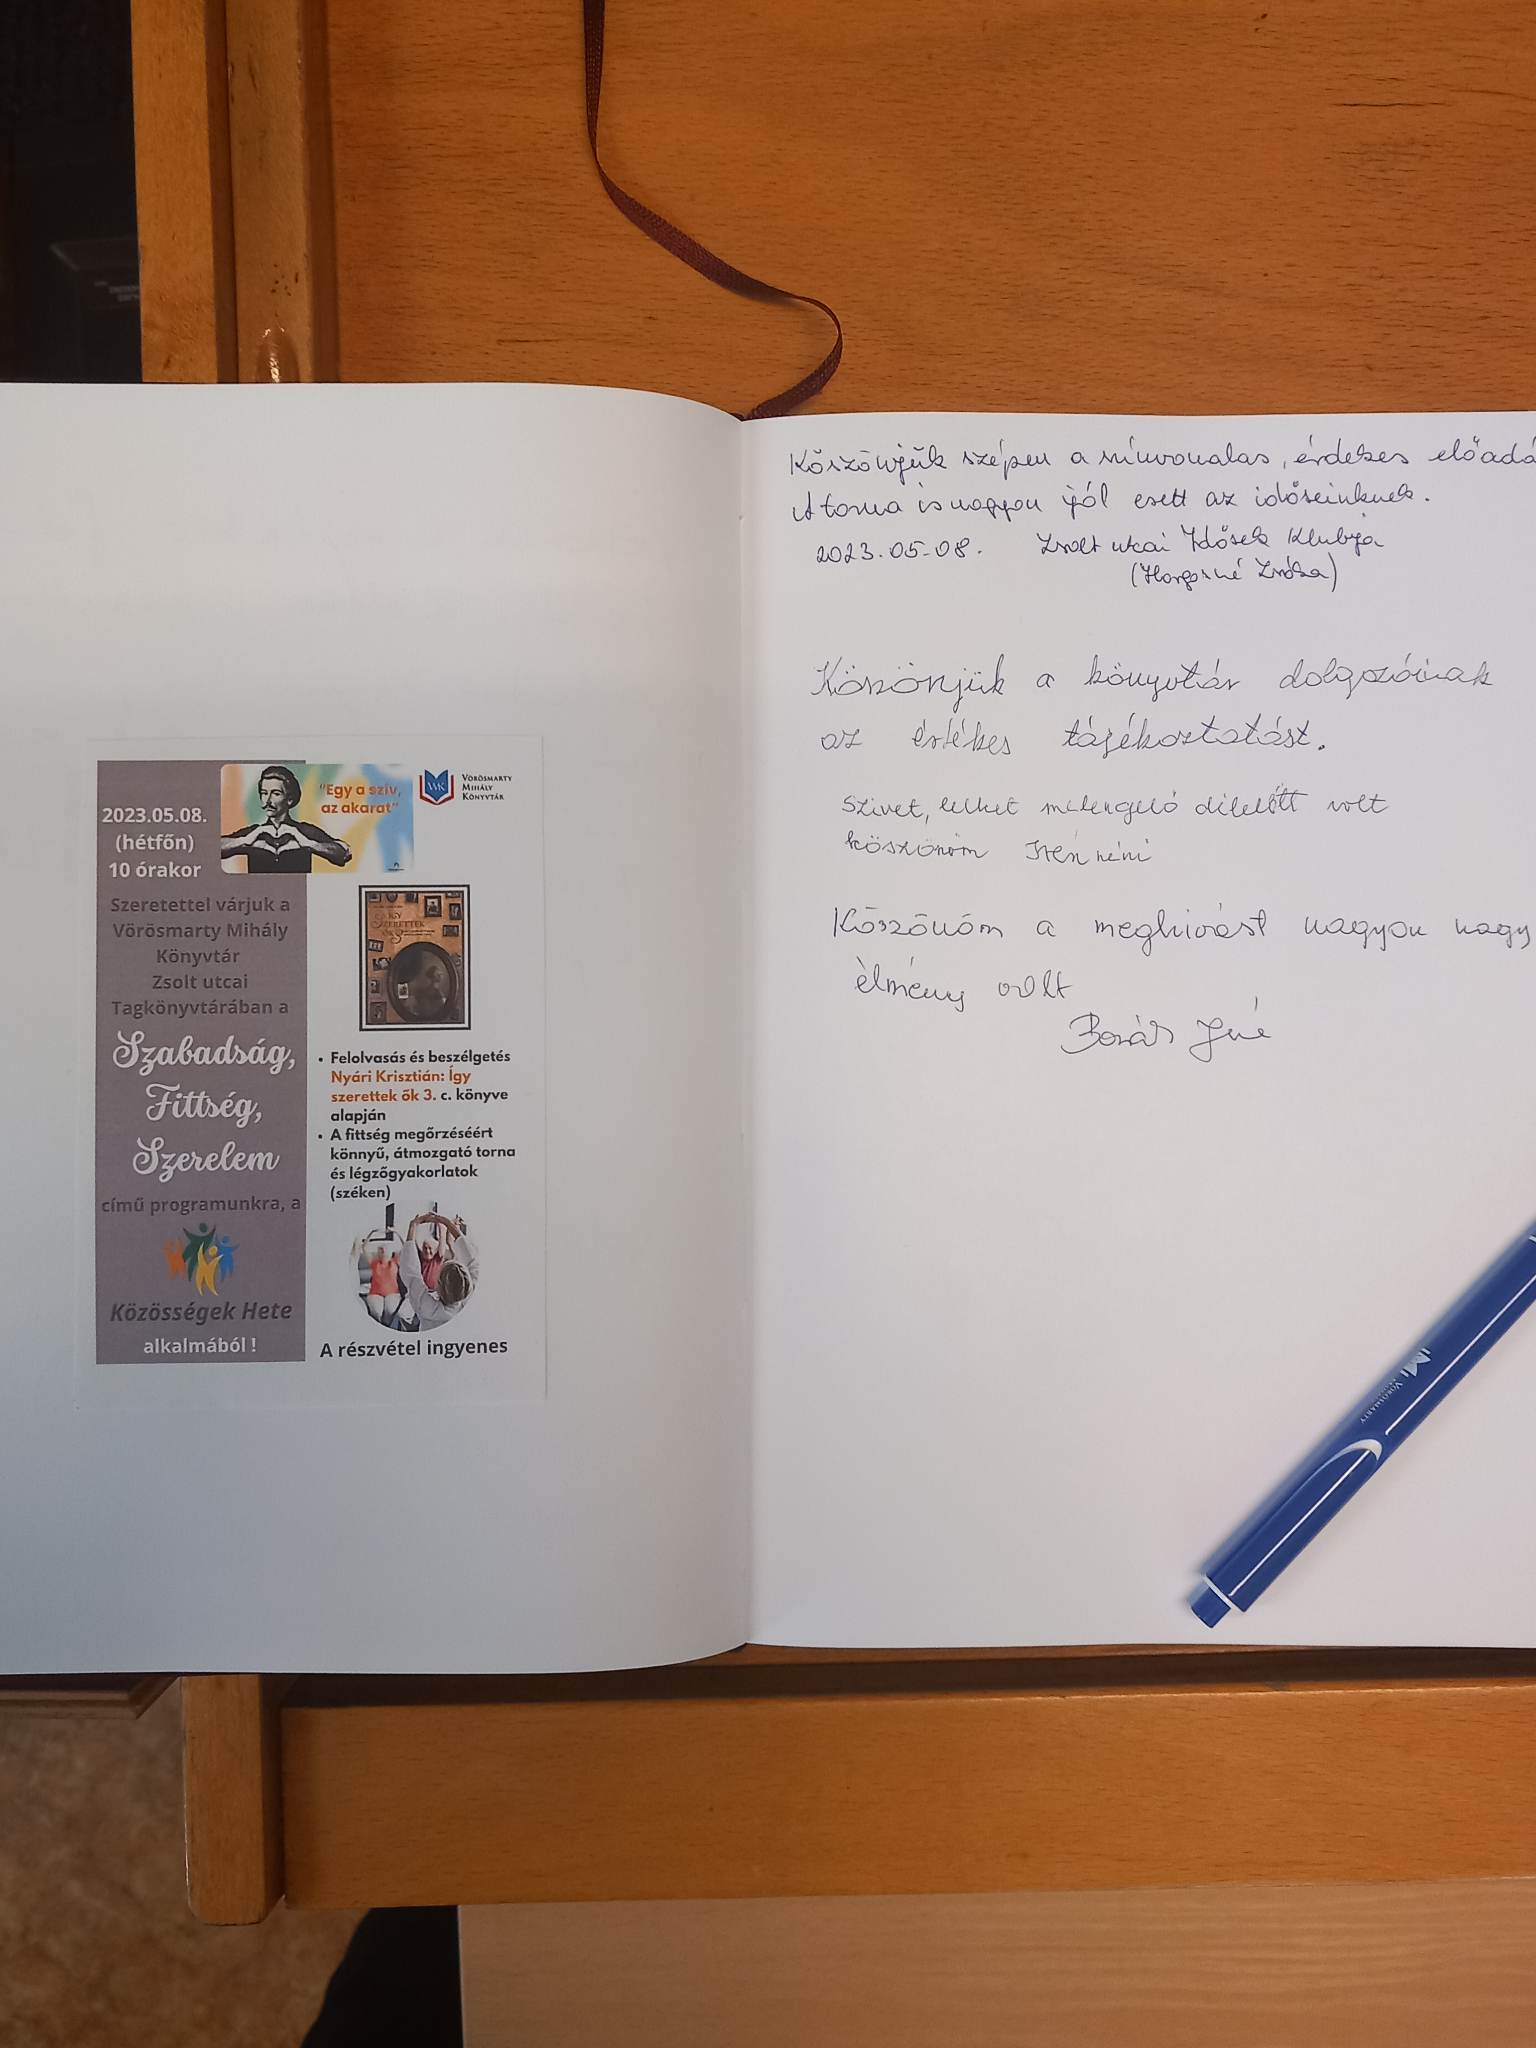 2023.05.08.
(hétfőn)
10 órakor
"Egy a szív,
az akarat"
VÖRÖSMARTY
MIHÁLY
KÖNYVTÁR
Szeretettel várjuk a
Vörösmarty Mihály
Könyvtár
Zsolt utcai
Tagkönyvtárában a
Szabadság,
Fittség,
Szerelem
című programunkra, a
Közösségek Hete
alkalmából !
ÍGY
SZERETTEK
ŐK 3
• Felolvasás és beszélgetés
Nyári Krisztián: Így
szerettek ők 3. c. könyve
alapján
• A fittség megőrzéséért
könnyű, átmozgató torna
és légzőgyakorlatok
(széken)
A részvétel ingyenes
Köszönjük szépen a színvonalas, érdekes előadá
A torna is nagyon jól esett az időseinknek.
2023.05-08. Zsolt utcai Idősek Klubja
Köszönjük a könyvtár dolgozóinak
az értékes tájékoztatást.
Szivet, lelket melengető délelőtt volt
köszönöm Irén néni
Köszönöm a meghivást nagyon nagy
élmény volt
VÖRÖSMARTY